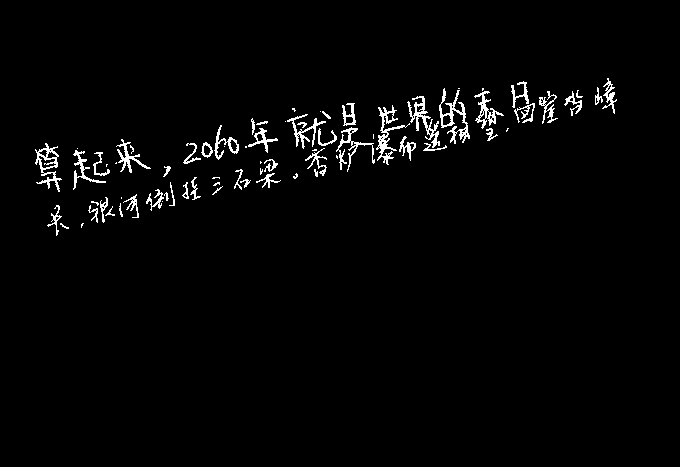 算起来，2060年就是世界的末日
长，银河倒挂三石梁。香炉瀑布遥相望，回崖沓嶂